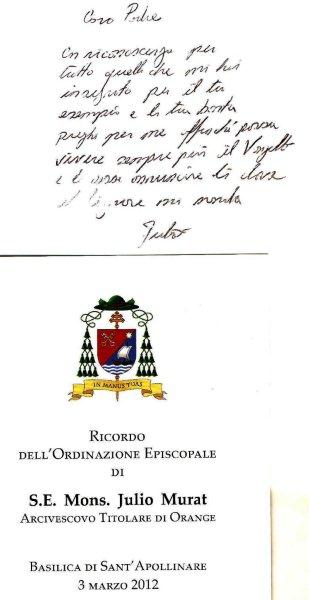 Caro Padre
Con riconoscenza per
tutto quello che mi hai
insegnato per il tuo
esempio e la tua bontà
preghi per me affinché possa
vivere sempre più il Vangelo
e essere là dove
il Signore mi manda
Julio
IN MANUS TUAS
RICORDO
DELL'ORDINAZIONE EPISCOPALE
DI
S.E. Mons. Julio Murat
ARCIVESCOVO TITOLARE DI ORANGE
BASILICA DI SANT'APOLLINARE
3 MARZO 2012